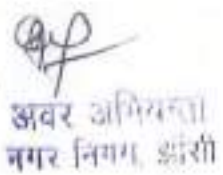 अवर अभियन्ता
नगर निगम, झांसी